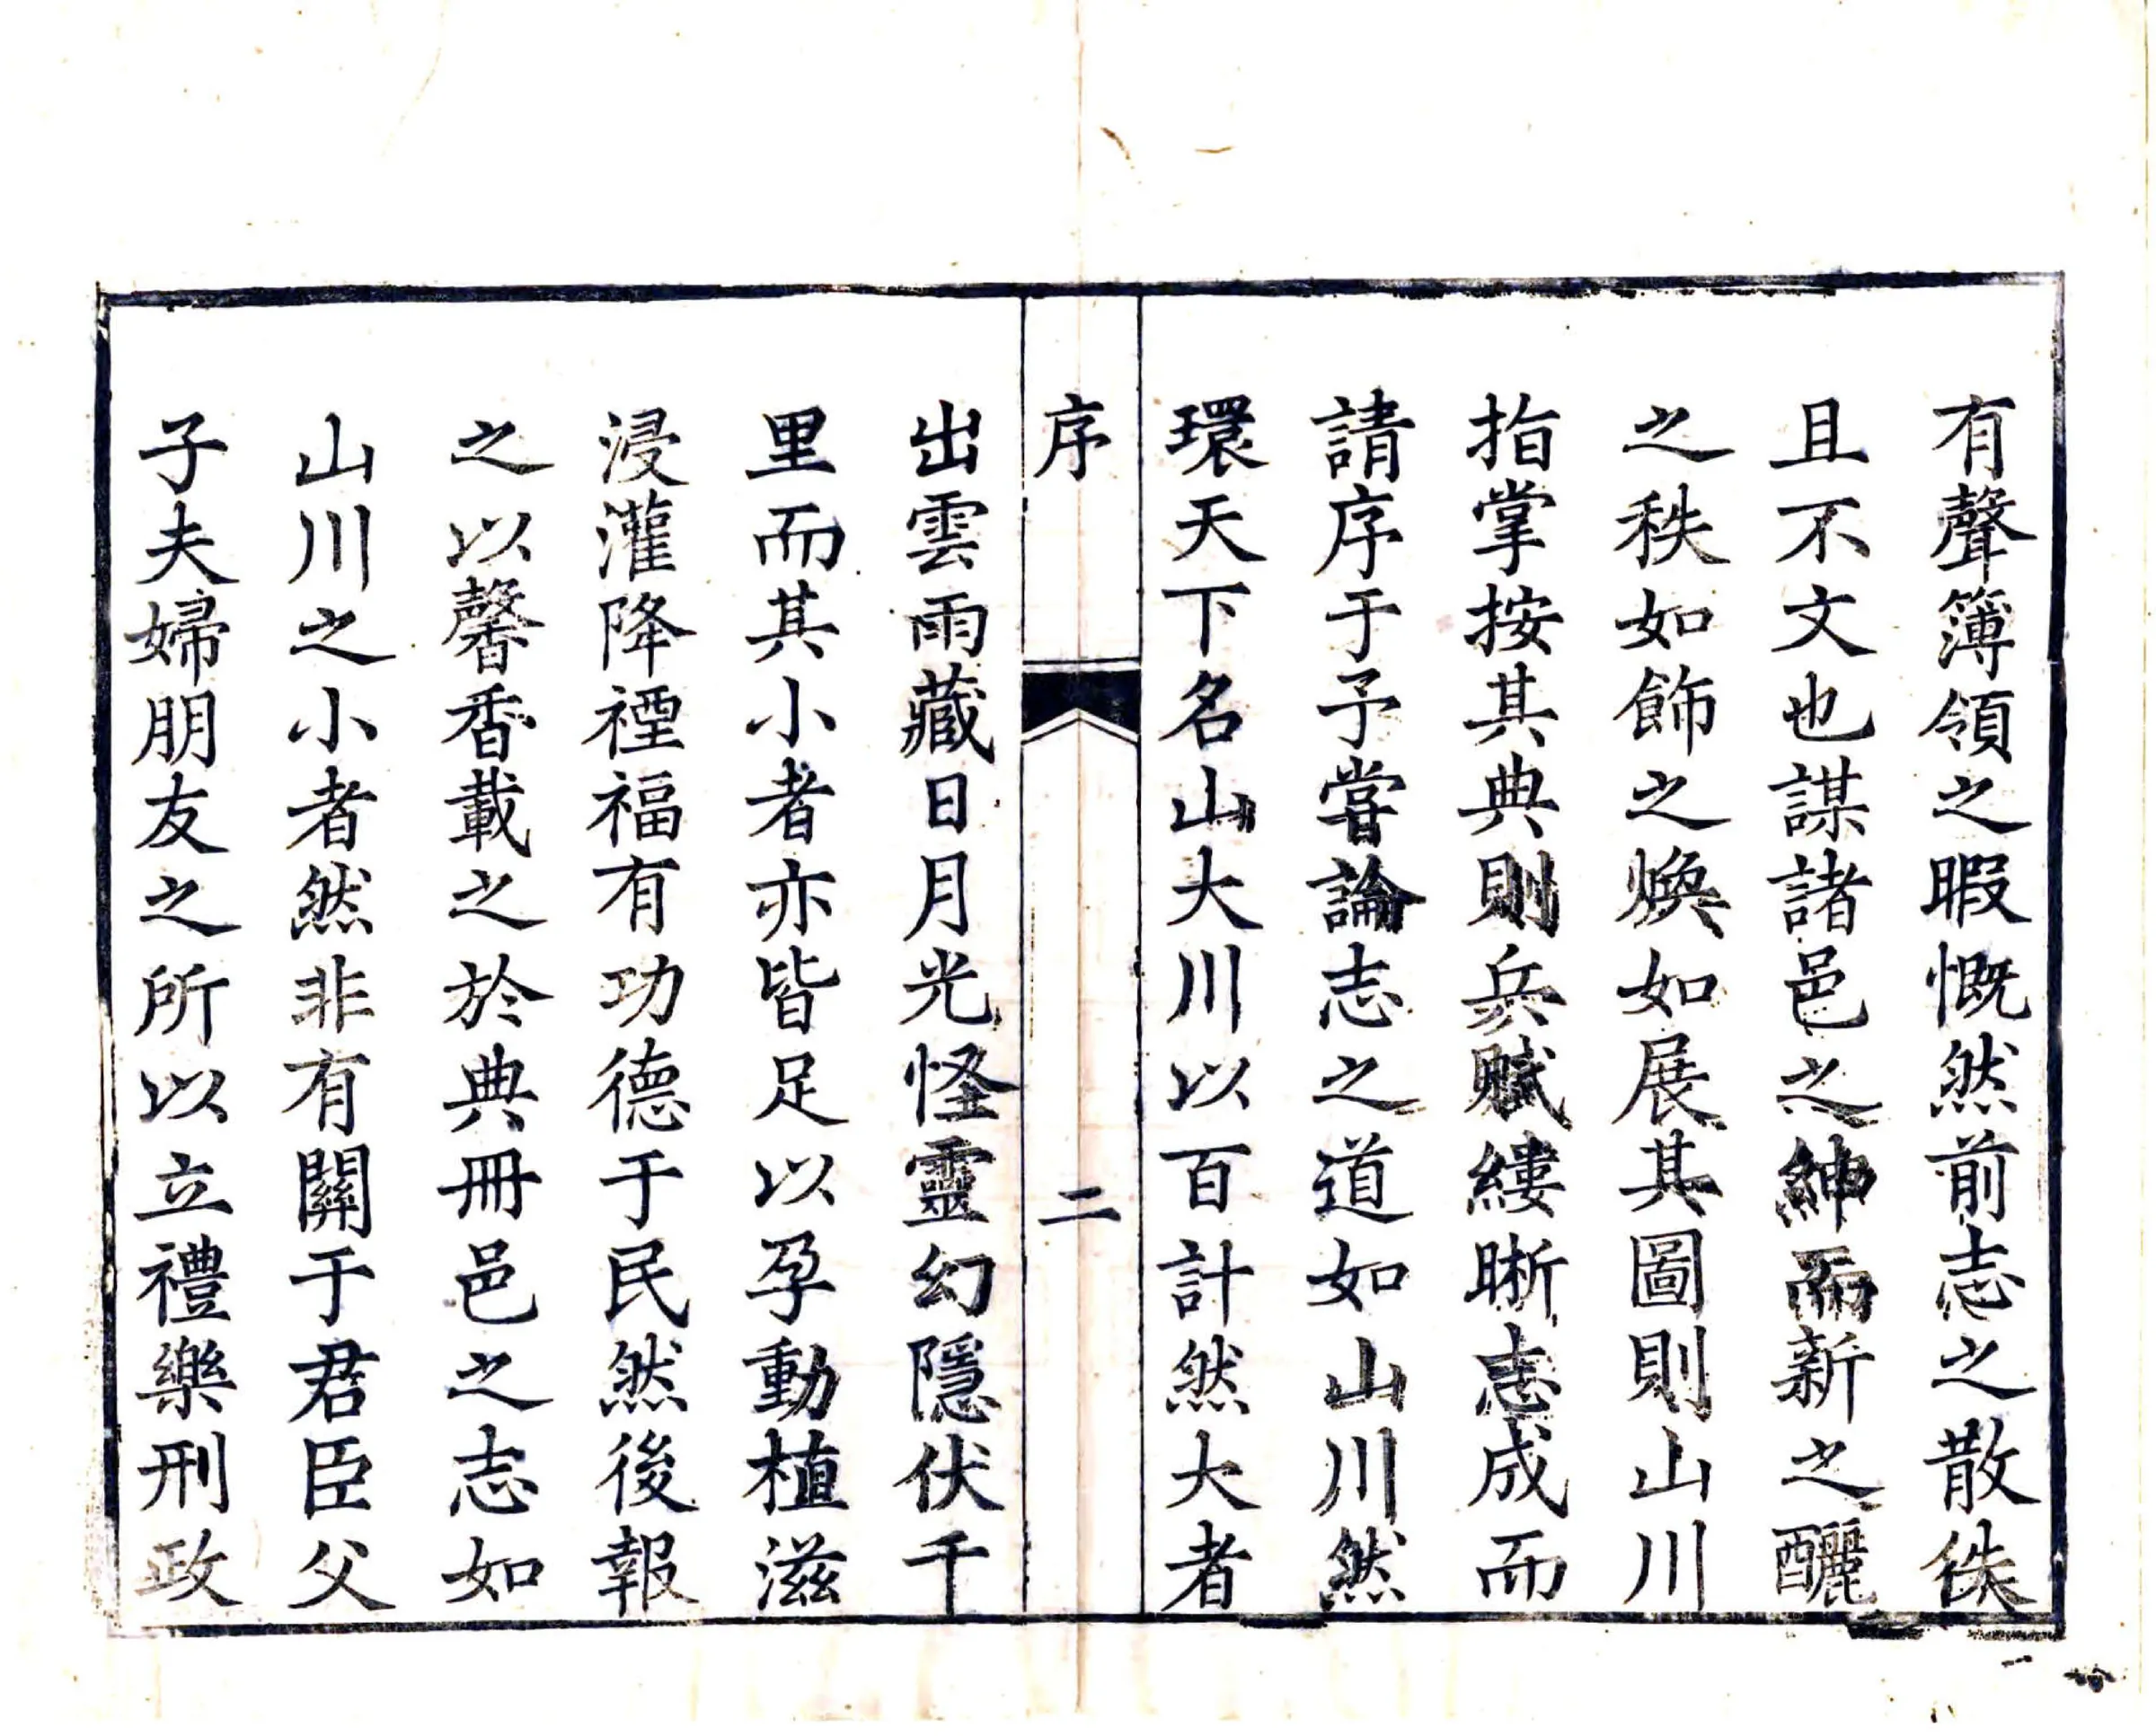 有聲簿領之暇慨然前志之散佚
且不文也謀諸邑之紳而新之釃
之秩如飾之煥如展其圖則山川
指掌按其典則兵賦縷晰志成而
請序于予嘗論志之道如山川然
環天下名山大川以百計然大者
序
二
出雲雨藏日月光怪靈幻隱伏千
里而其小者亦皆足以孕動植滋
浸灌降禋福有功德于民然後報
之以馨香載之於典冊邑之志如
山川之小者然非有關于君臣父
子夫婦朋友之所以立禮樂刑政